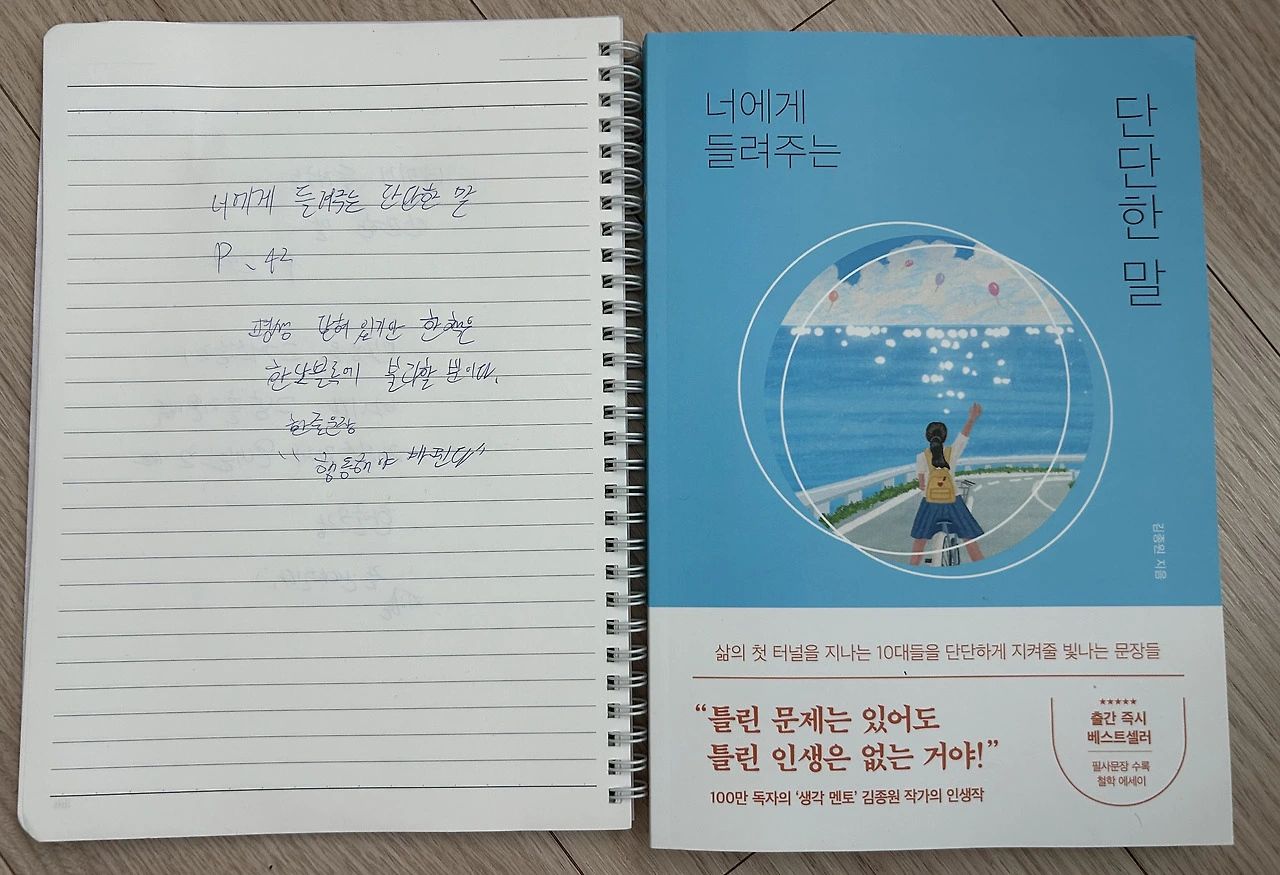 너에게 들려주는 단단한 말
P. 42
평생 닫혀 있기만 한 책은
한낱 블록에 불과할 뿐이다.
한줄문장
"행동해야 바뀐다"
너에게
들려주는
단단한 말
김종원 지음
삶의 첫 터널을 지나는 10대들을 단단하게 지켜줄 빛나는 문장들
“틀린 문제는 있어도
틀린 인생은 없는 거야!”
100만 독자의 ‘생각 멘토’ 김종원 작가의 인생작
★★★★★
출간 즉시
베스트셀러
필사문장 수록
철학 에세이